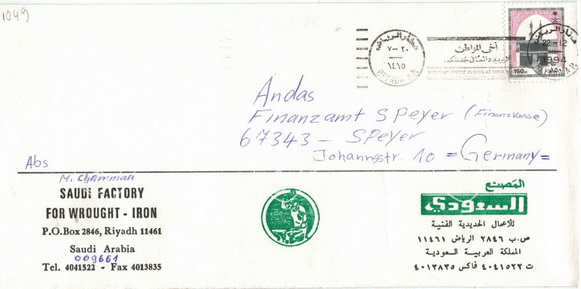 1049
مطار الرياض
٧-٢٠
١٤١٥
أخي المواطن
البريد والهاتف في خدمتكم
22-12
1994
Andas
Finanzamt Speyer (Finanzkasse)
67343 - Speyer
Johannstr. 10 = Germany =
Abs
M. Chamman
SAUDI FACTORY
FOR WROUGHT - IRON
P.O.Box 2846, Riyadh 11461
Saudi Arabia
009661
Tel. 4041522 - Fax 4013835
المصنع
السعودي
للاعمال الحديدية الفنية
ص.ب ٢٨٤٦ الرياض ١١٤٦١
المملكة العربية السعودية
ت ٤٠٤١٥٢٢ فاكس ٤٠١٣٨٣٥